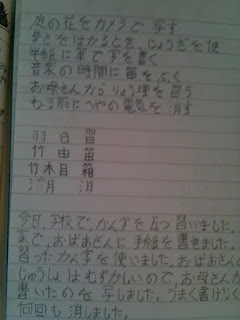 庭の花をカメラで写す
長さをはかるとき、じょうぎを使
半紙に筆で字を書く
音楽の時間に笛をふく
お母さんからりょう理を習う
ねる前にへやの電気を消す
羽 白 習
竹 由 笛
竹 木目 箱
氵 月 消
今日、学校で、かんすを五つ習いました。
家で、おばあさんに手紙を書きました。
習ったかんすを使いました。おばあさんの
じゅうしょはむずかしいので、お母さんが
書いたのを写しました。うまく書けなく
何回も消しました。